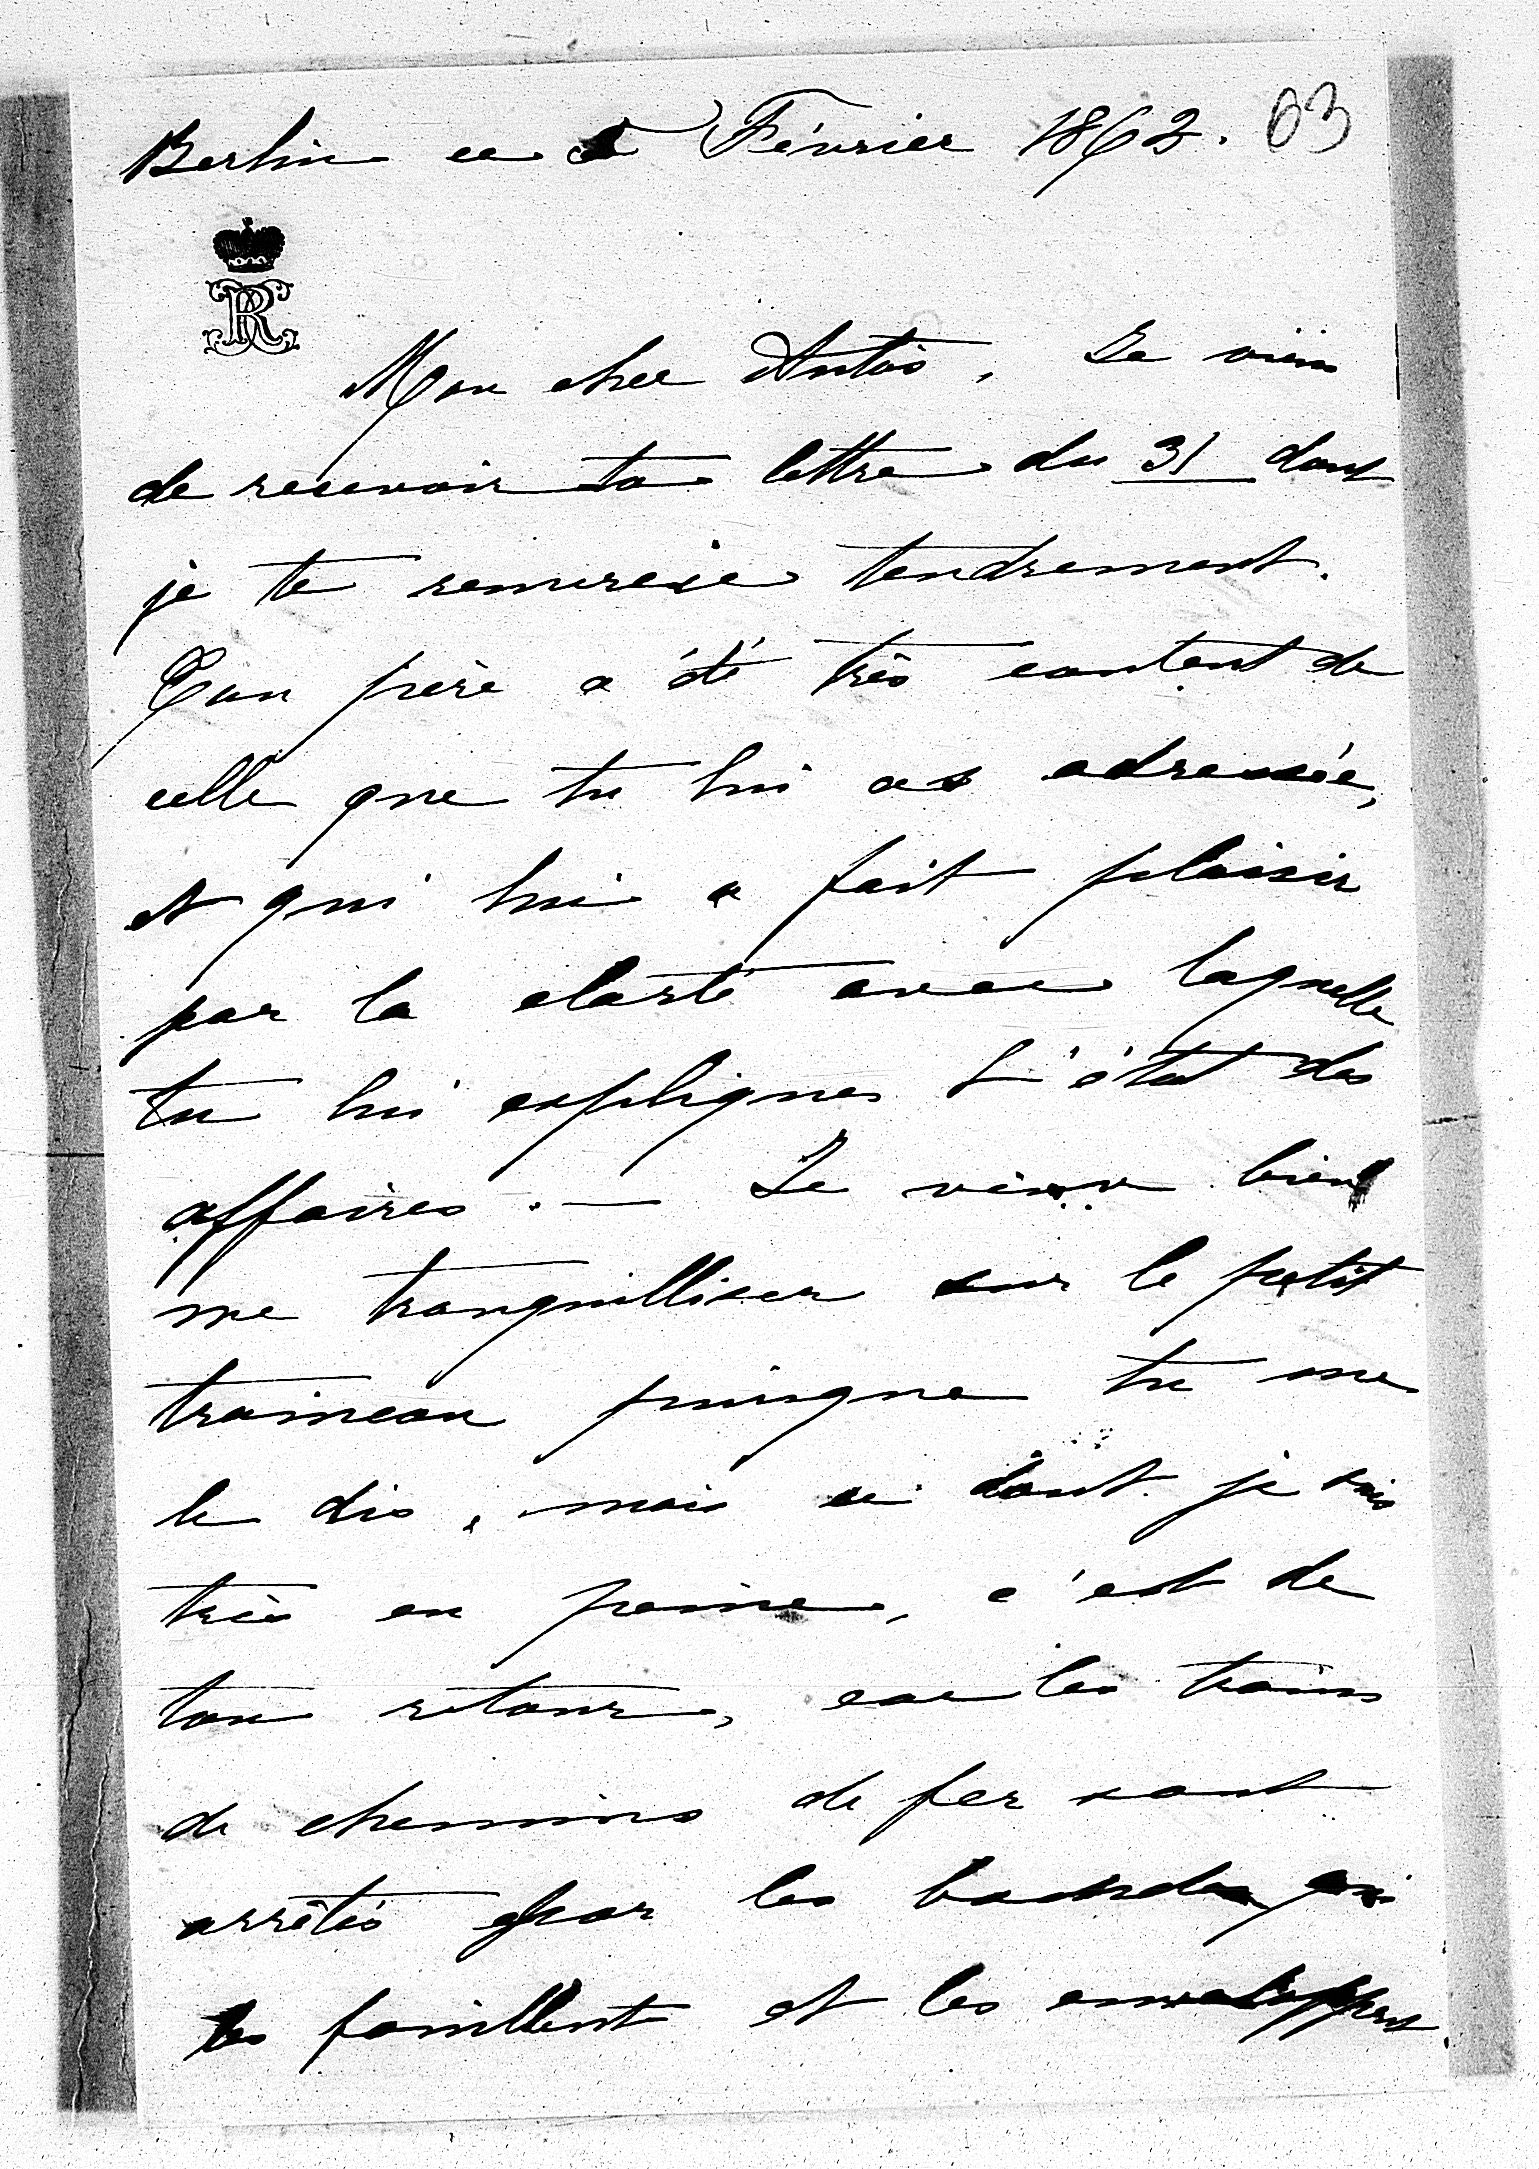 Berlin ce Février 1862. 63
R
Mon cher Antos, Je viens
de recevoir ta lettre du 31 dont
je te remercie tendrement.
Ton père a été très content de
celle que tu lui as adressée,
et qui lui a fait plaisir
par la clarté avec laquelle
tu lui expliques l'état des
affaires. — Je veux bien
me tranquilliser sur le petit
traineau puisque tu me
le dis, mais ce dont je suis
très en peine, c'est de
ton retour, car les trains
de chemins de fer sont
arrêtés par les bandes qui
les fouillent et les enveloppent.